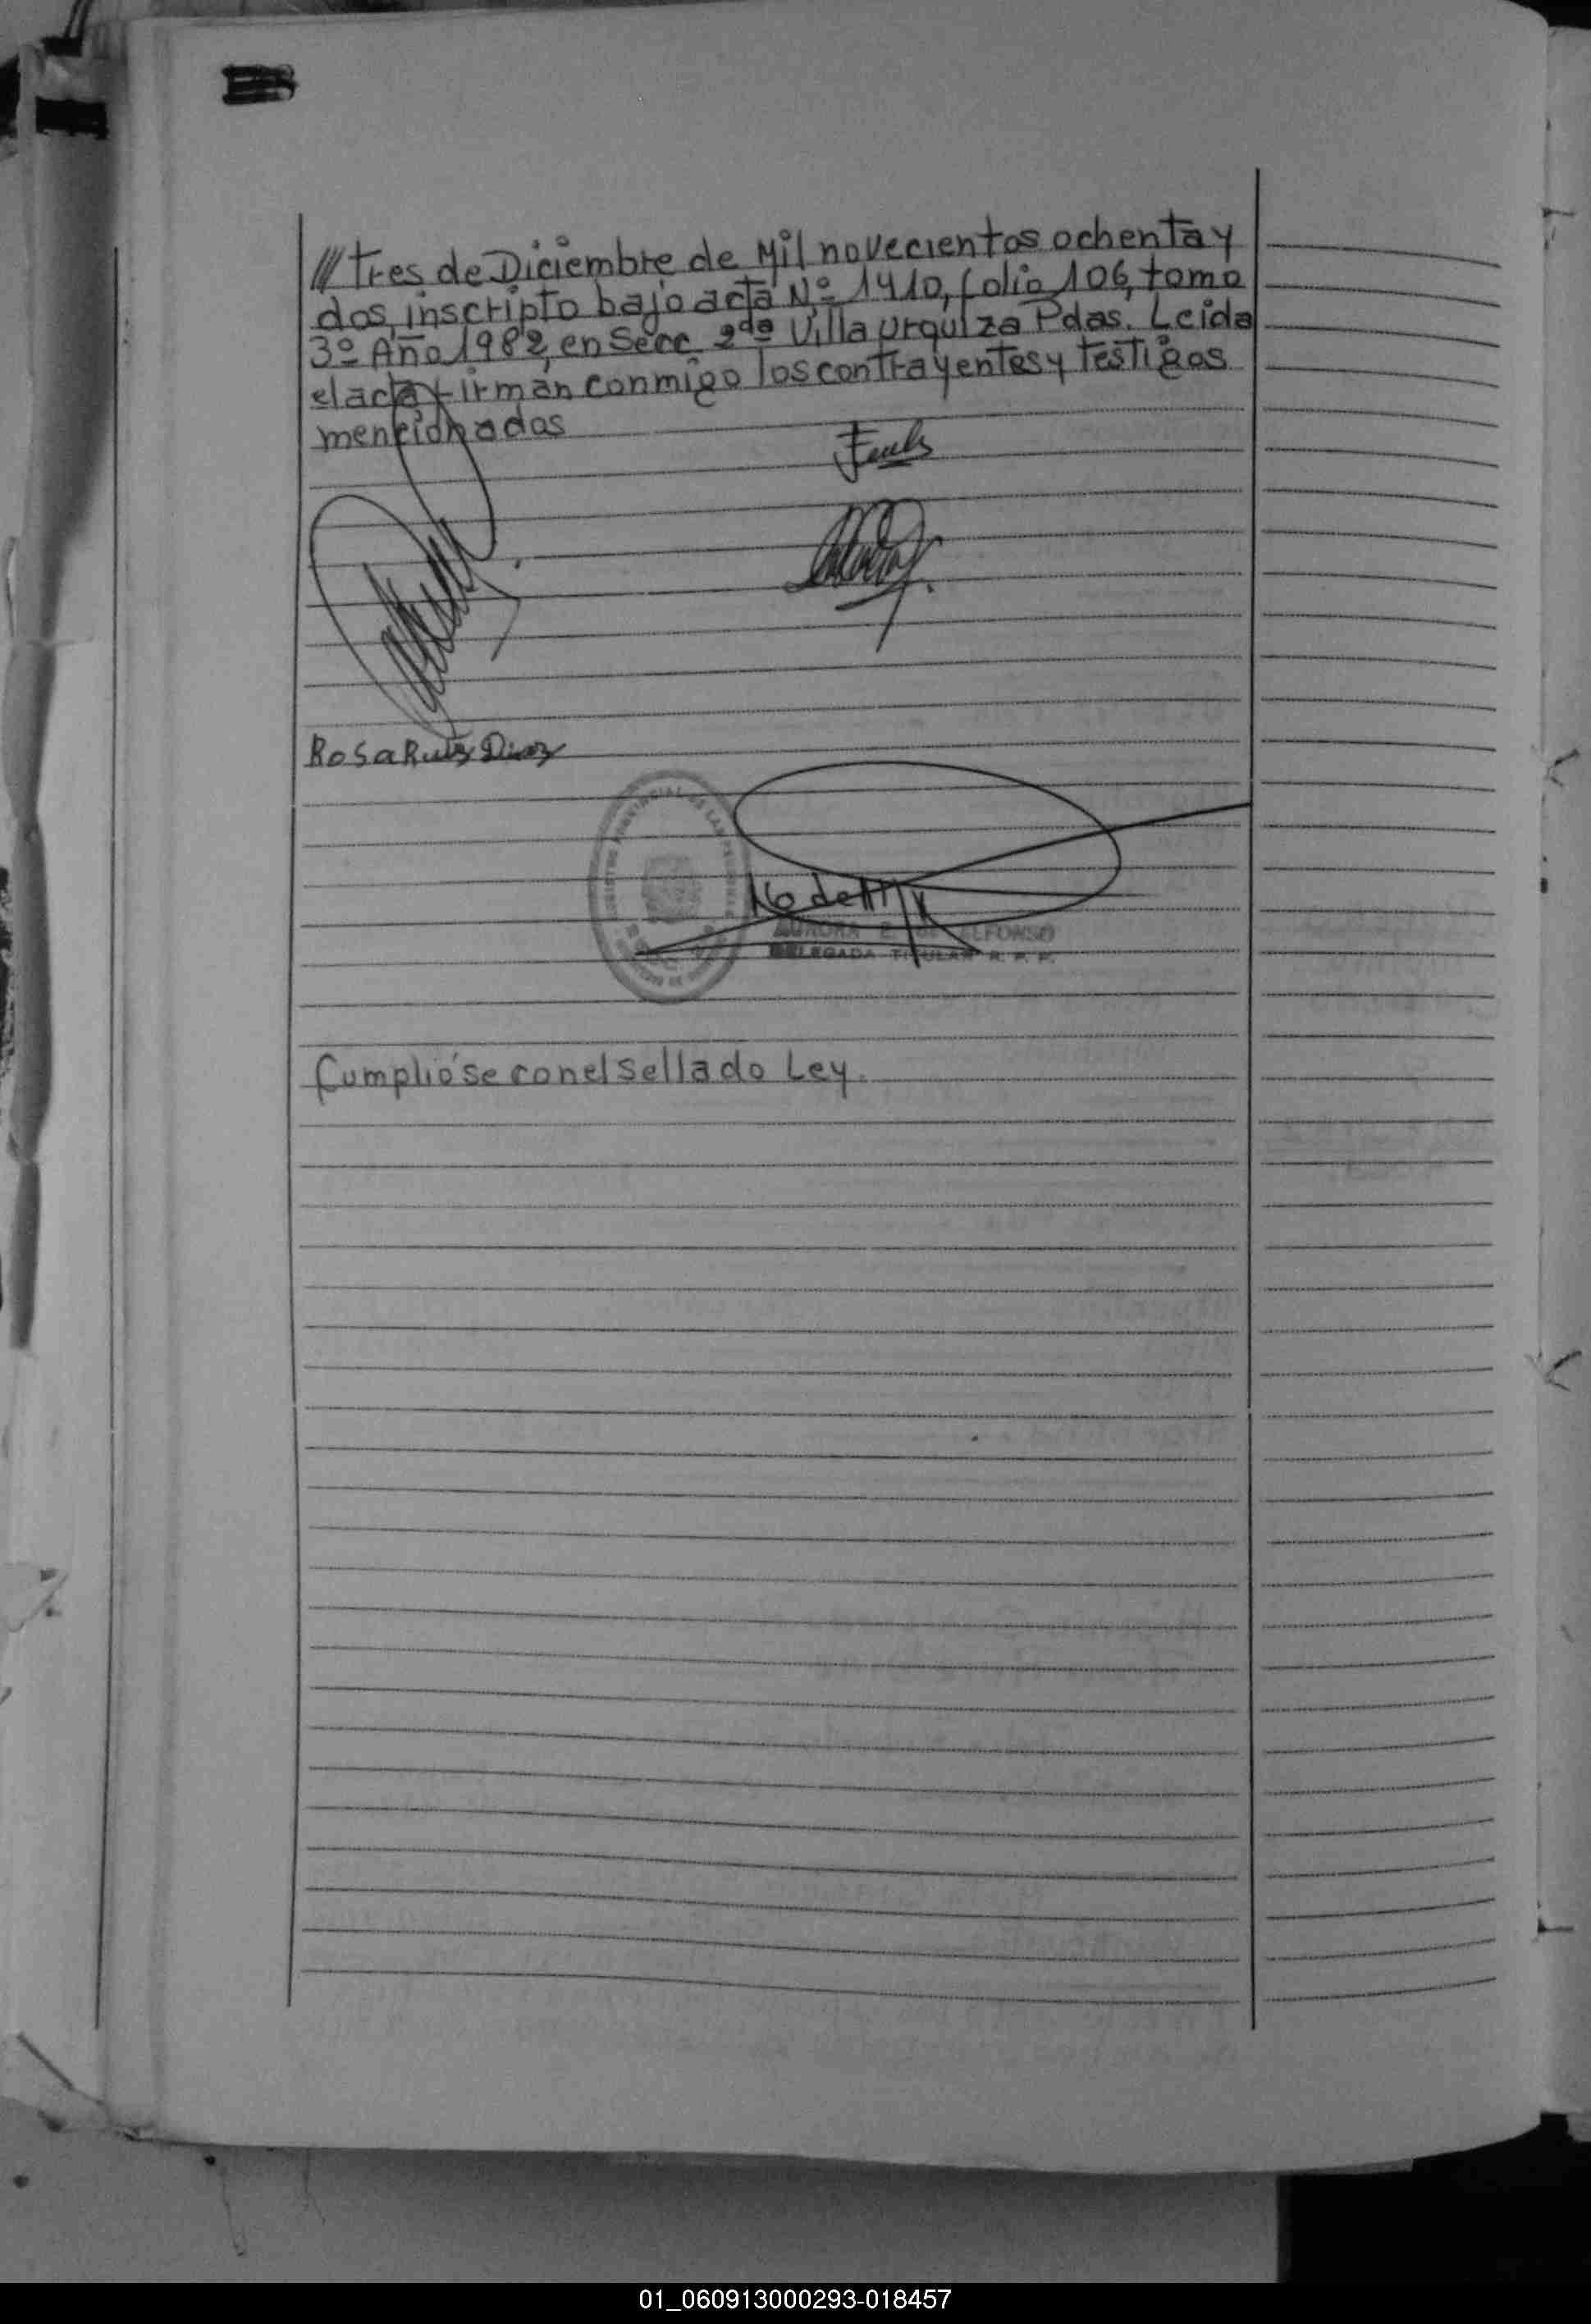 /// tres de Diciembre de Mil novecientos ochenta y
dos, inscripto bajo acta Nº 1410, folio 106, tomo
3º Año 1982, en Secc 2da Villa Urquiza Pdas. Leida
el acta firman conmigo los contrayentes y testigos
mencionados
Rosa Ruiz Diaz
AURORA E. DE ALFONSO
DELEGADA TITULAR R. P. P.
Cumplióse con el sellado Ley.
01_060913000293-018457